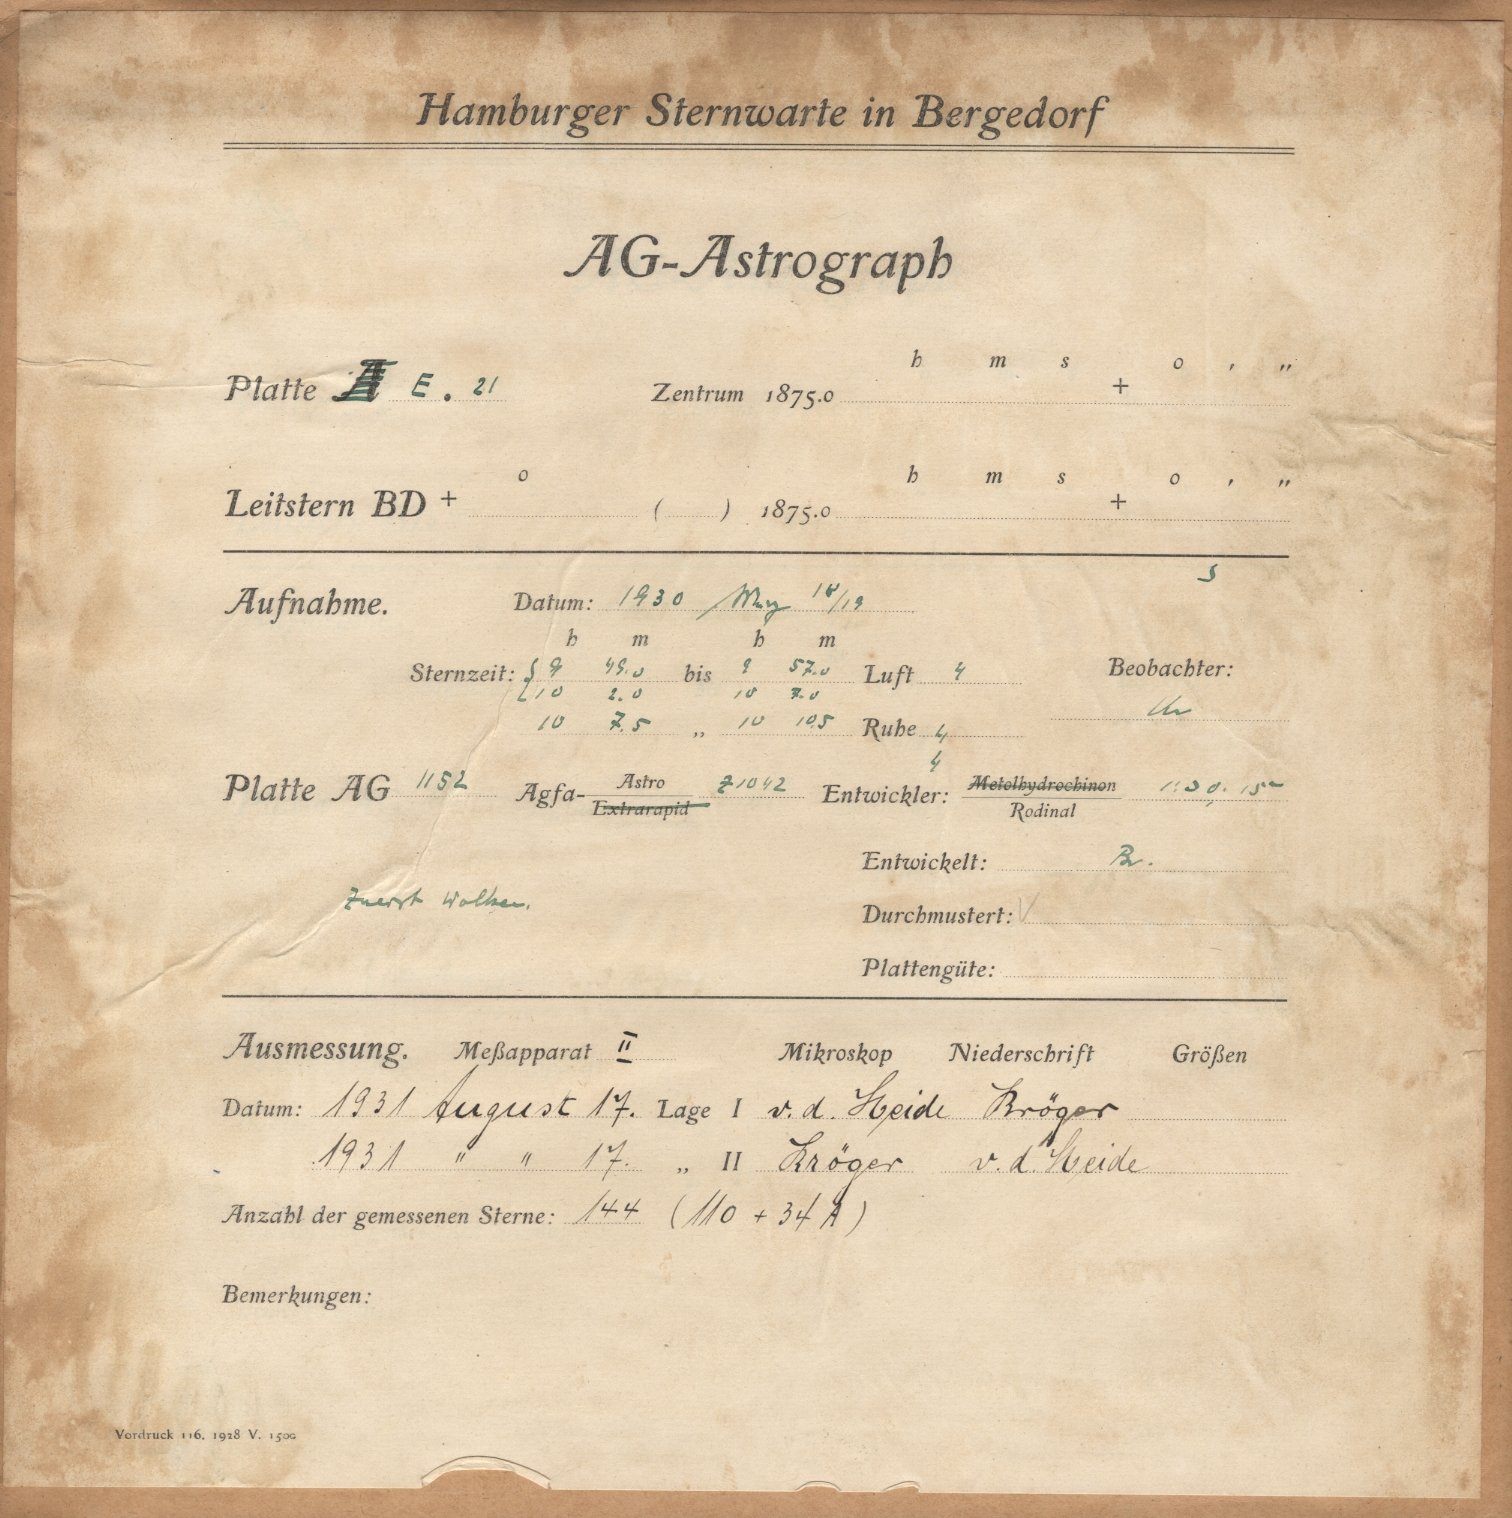 Hamburger Sternwarte in Bergedorf
AG-Astrograph
h m s o , „
Platte A E. 21 Zentrum 1875.0 +
o h m s o , „
Leitstern BD + ( ) 1875.0 +
Aufnahme. Datum: 1930 May 18/19 S
h m h m
Sternzeit: { 9 49.0 bis 9 57.0 Luft 4 Beobachter:
10 2.0 10 7.0
10 7.5 „ 10 10.5 Ruhe 4
4
Platte AG 1152 Agfa- Astro Extrarapid Z1042 Entwickler: Metolhydrochinon Rodinal 1:30. 15m
Entwickelt: Br.
zuerst Wolken. Durchmustert: V
Plattengüte:
Ausmessung. Meßapparat II Mikroskop Niederschrift Größen
Datum: 1931 August 17. Lage I v. d. Heide Kröger
1931 " " 17. „ II Kröger v. d. Heide
Anzahl der gemessenen Sterne: 144 (110 + 34 A)
Bemerkungen:
Vordruck 116. 1928 V. 1500